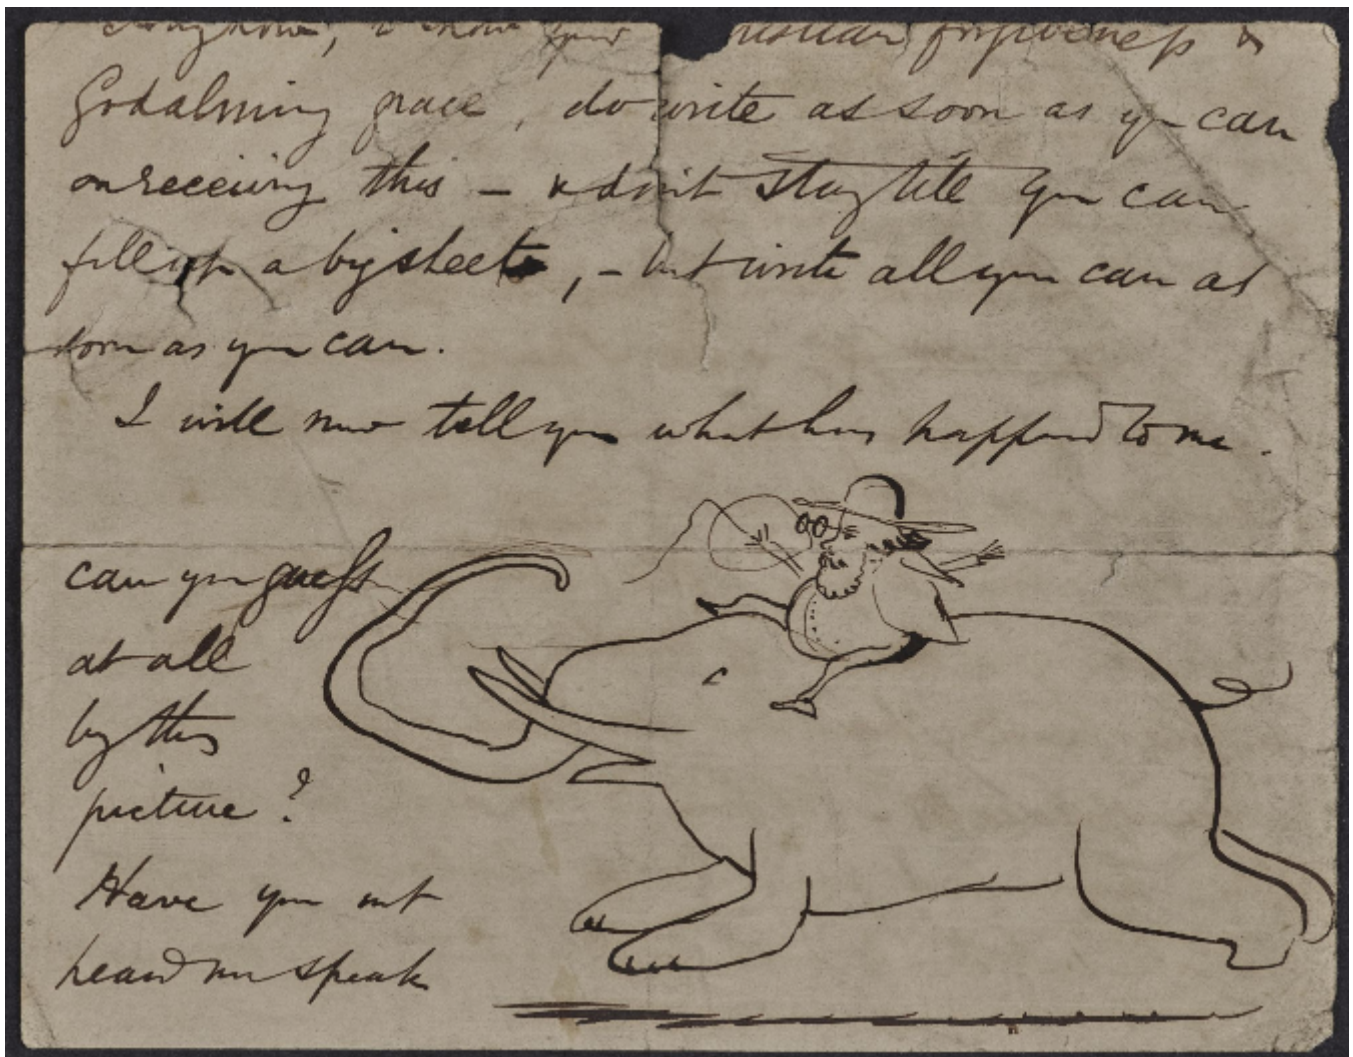 know your usual forgiveness &
Godalming grace, do write as soon as you can
on receiving this – & don't stay till you can
fill up a big sheet, – but write all you can as
soon as you can.
I will now tell you what has happened to me.
can you guess
at all
by this
picture?
Have you not
heard me speak